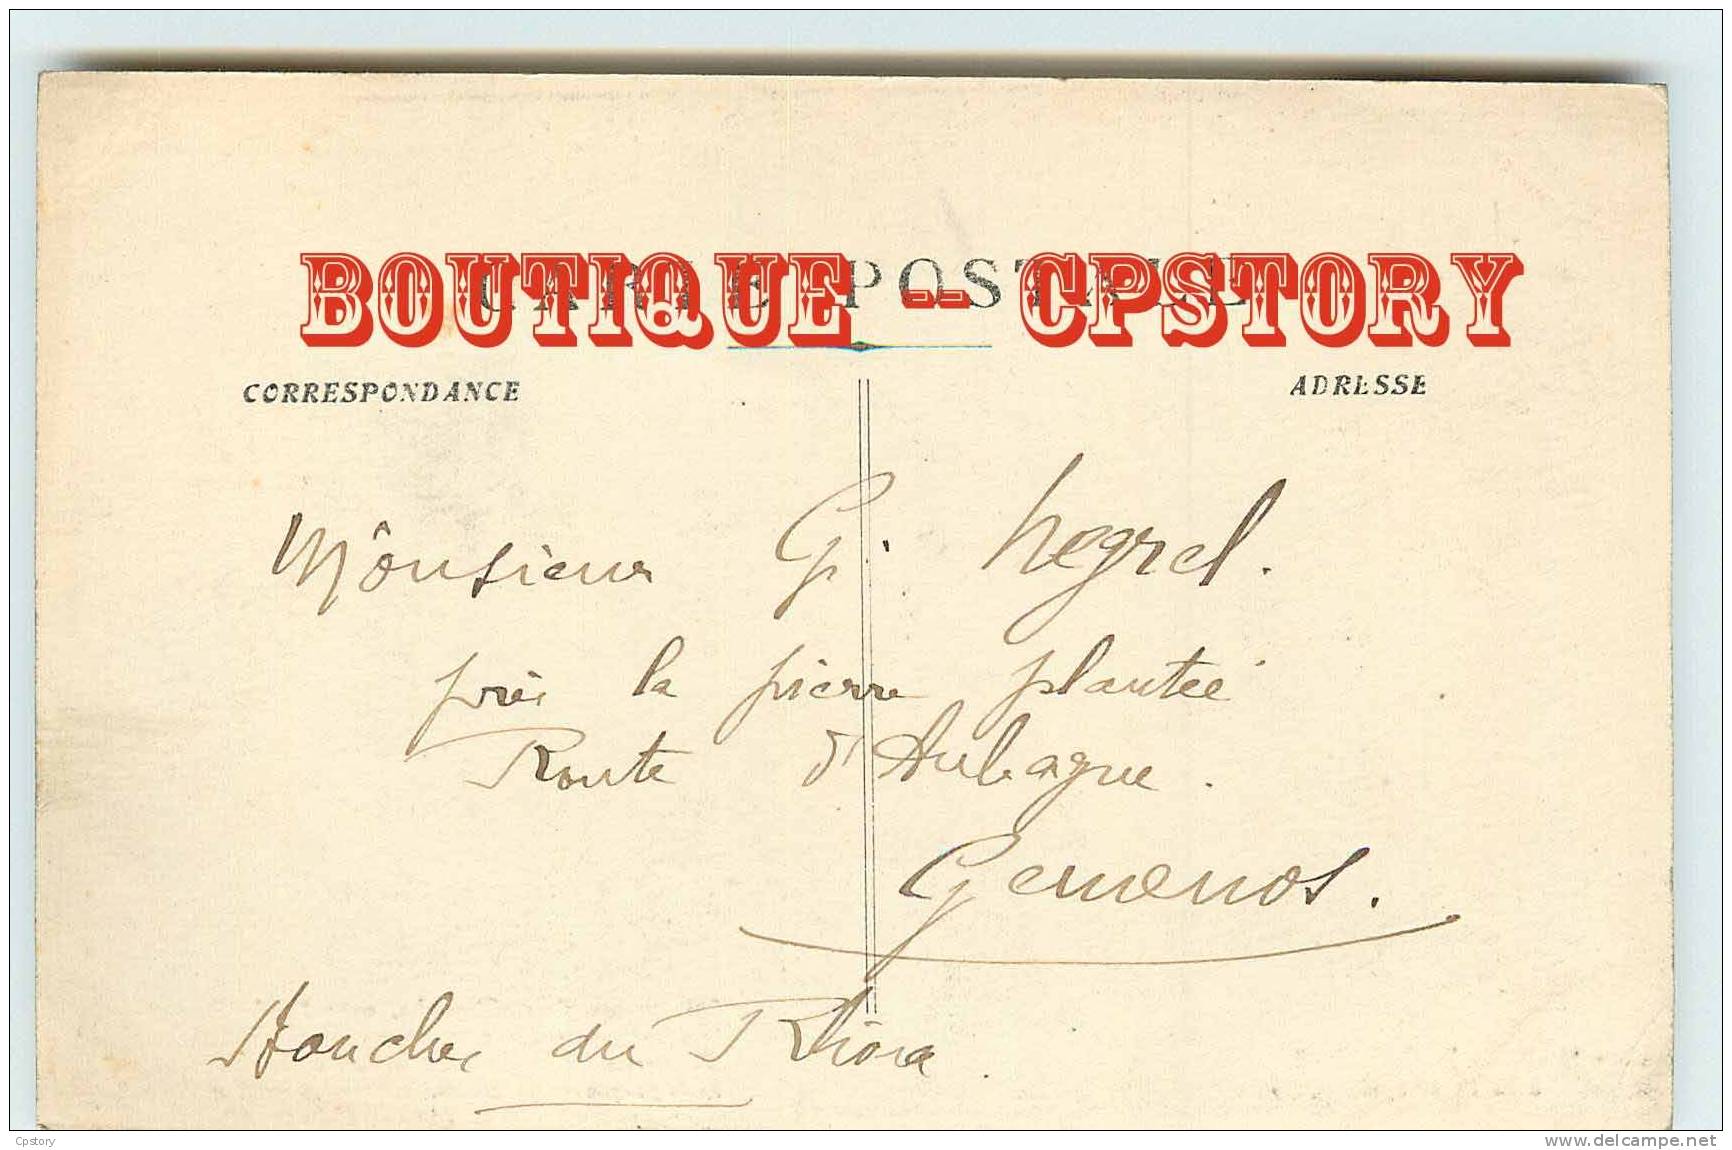 CARTE POSTALE
BOUTIQUE -- CPSTORY
CORRESPONDANCE
ADRESSE
Monsieur G. Negrel.
près la pierre plantée
Route d'Aubagne.
Gemenos.
Bouches du Rhône.
Cpstory
www.delcampe.net